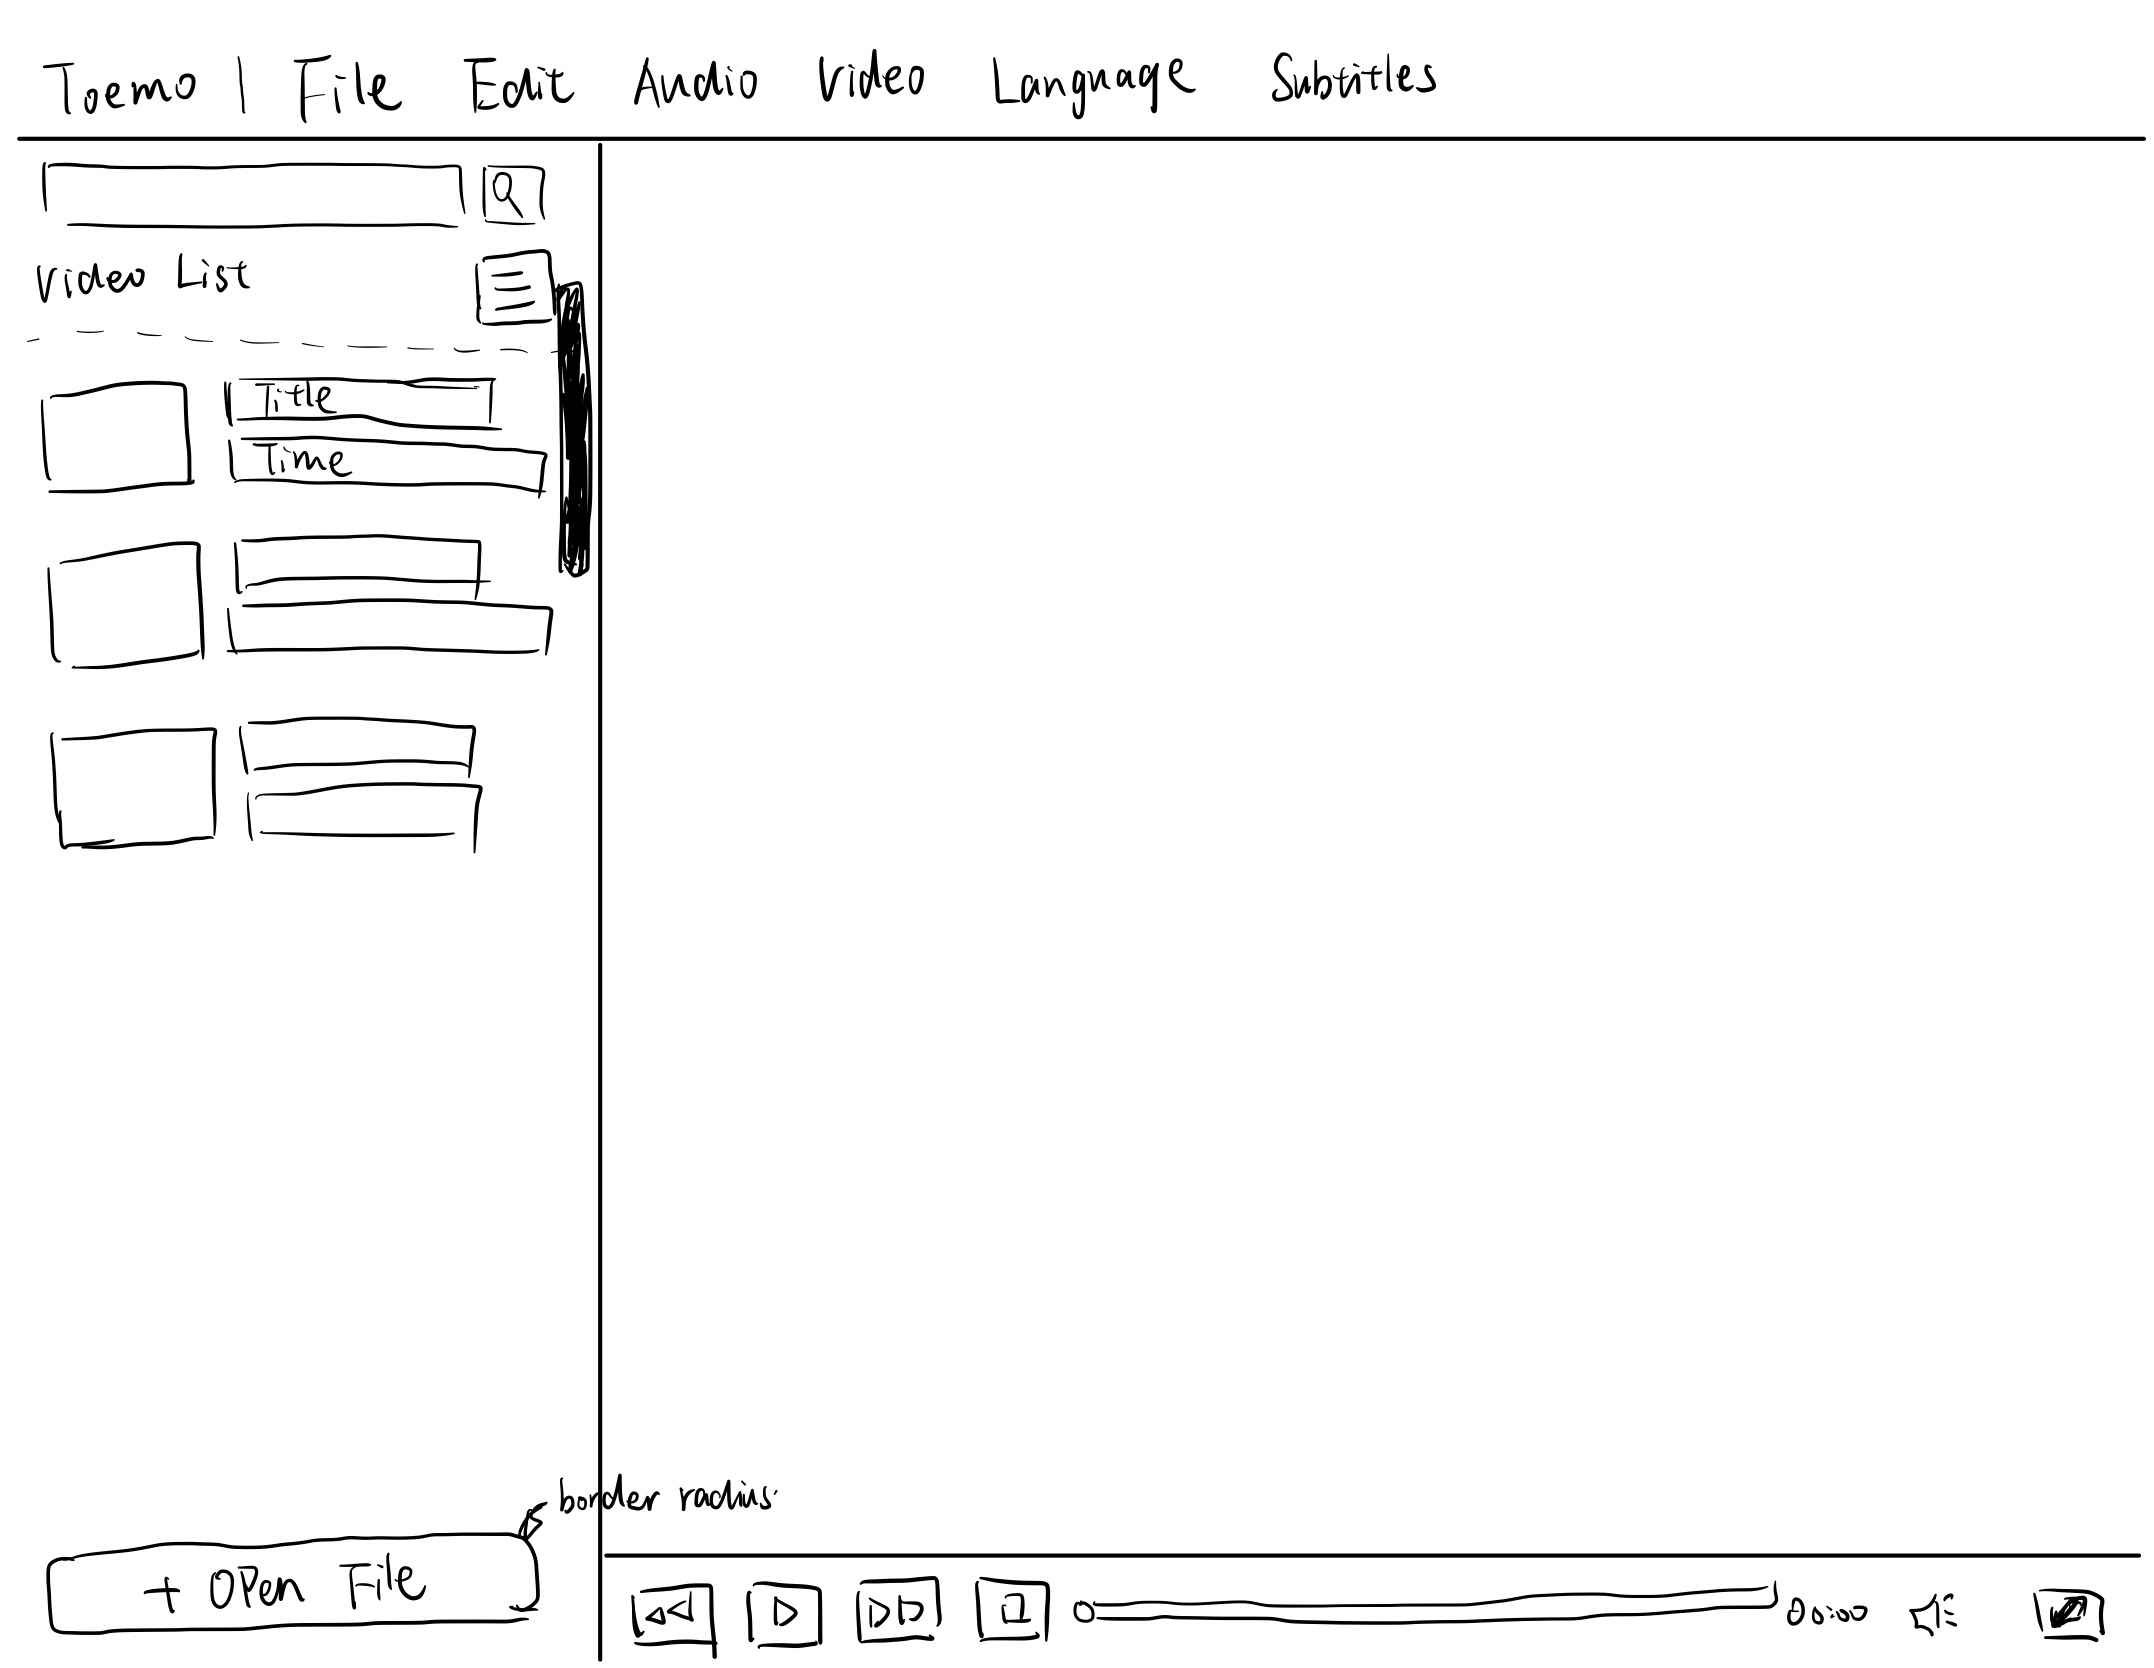 Toemo | File Edit Audio Video Language Subtitles
Video List
Title
Time
border radius
+ Open File
00:00